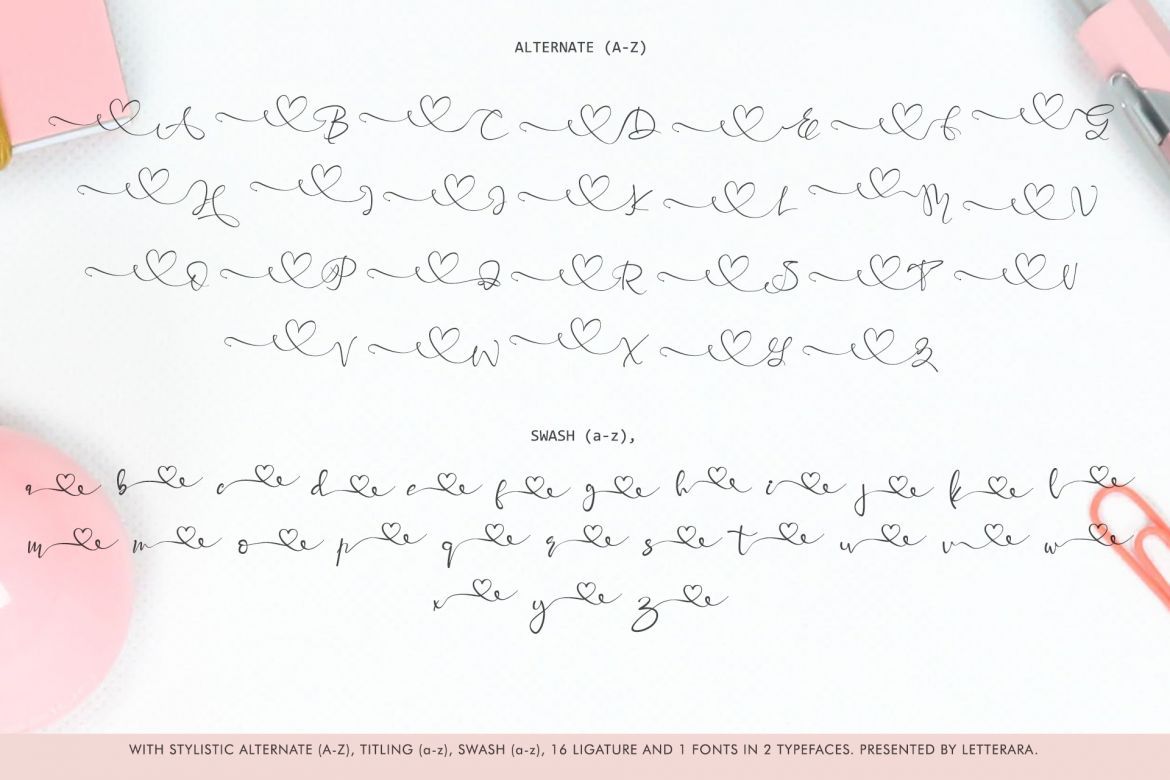 ALTERNATE (A-Z)
A B C D E F G
H I J K L M N
O P Q R S T U
V W X Y Z
SWASH (a-z),
a b c d e f g h i j k l
m n o p q r s t u v w
x y z
WITH STYLISTIC ALTERNATE (A-Z), TITLING (a-z), SWASH (a-z), 16 LIGATURE AND 1 FONTS IN 2 TYPEFACES. PRESENTED BY LETTERARA.